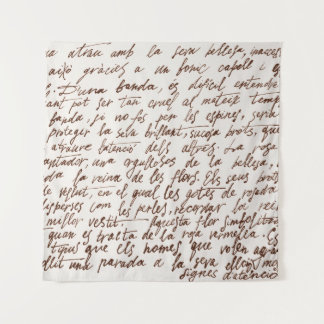 ua atrau amb la seva bellesa, maces
això gràcies a un bonic capoll i e
s. D'una banda, és difícil entendre
ant pot ser tan cruel al mateix temp
banda, si no fos per les espines, seria
protegir la seva brillant, sucosa brots, que
atraure l'atenció dels altres. La rosa
antador, una orgullosa de la bellesa,
da la reina de les flors. Els seus
le vestit, en el qual les gotes de rosada
isperses com les perles, recordar la rei
millor vestit. Aquesta flor simbolitza
quan es tracta de la roja vermella. Es
tiguis que els homes que volen
dlit una parada a la seva
signes d'atenció